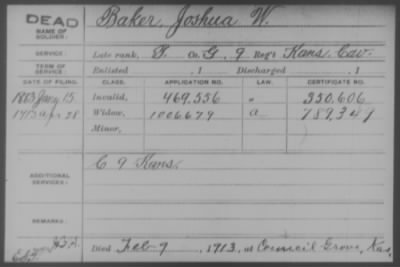 DEAD
NAME OF SOLDIER: Baker, Joshua W.
SERVICE: Late rank, P. Co. G, 9 Reg't Kans. Cav.
TERM OF SERVICE: Enlisted , 1 Discharged , 1
DATE OF FILING. CLASS. APPLICATION NO. LAW. CERTIFICATE NO.
Jany 15 Invalid, 469.556 " 350.606
1913 Apr 28 Widow, 1006679 a 789,347
Minor,
ADDITIONAL SERVICES: C 9 Kans.
REMARKS:
Died Feb 7, 1913, at Council Grove, Kas,